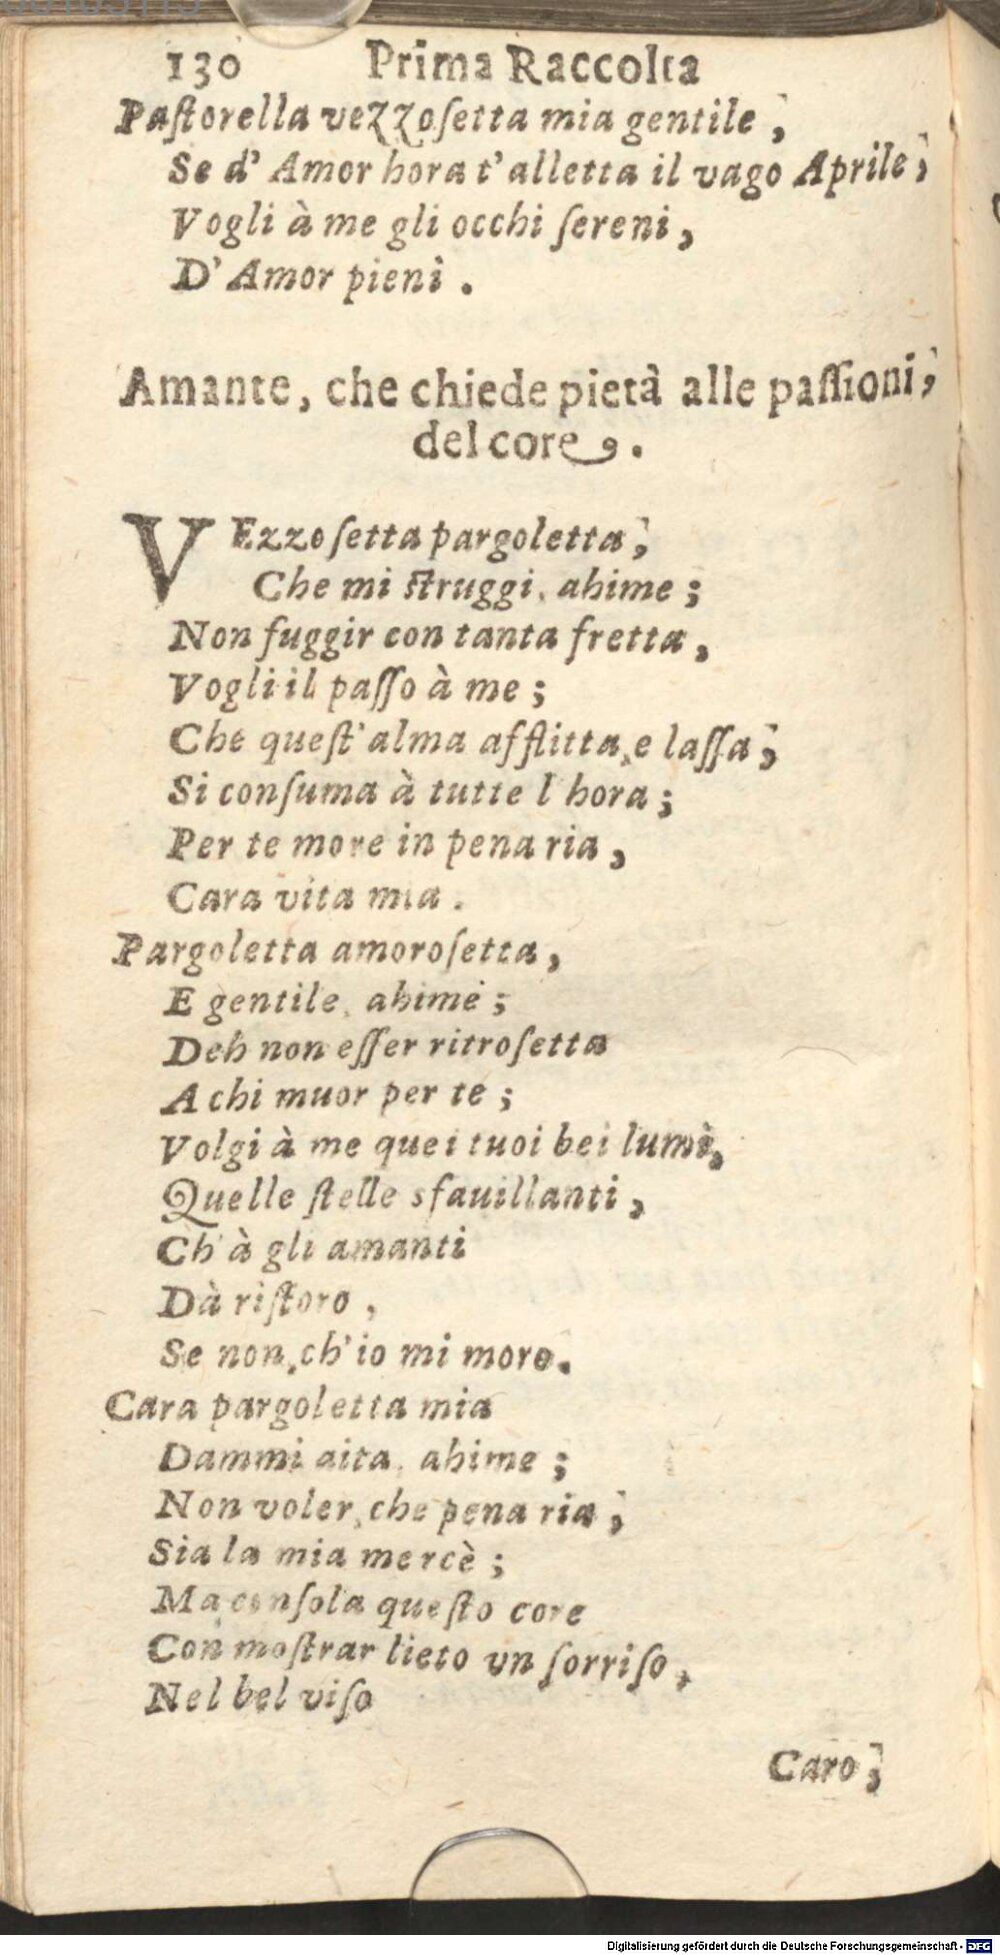 130 Prima Raccolta
Paſtorella vezzoſetta mia gentile,
Se d' Amor hora t'alletta il vago Aprile,
Vogli à me gli occhi ſereni,
D' Amor pieni.
Amante, che chiede pietà alle paſſioni,
del core.
VEzzoſetta pargoletta,
Che mi ſtruggi, ahime;
Non fuggir con tanta fretta,
Vogli il paſſo à me;
Che queſt' alma afflitta, e laſſa,
Si conſuma à tutte l hora;
Per te more in pena ria,
Cara vita mia.
Pargoletta amoroſetta,
E gentile, ahime;
Deh non eſſer ritroſetta
A chi muor per te;
Volgi à me quei tuoi bei lumi,
Quelle ſtelle sfauillanti,
Ch' à gli amanti
Dà riſtoro,
Se non, ch' io mi moro.
Cara pargoletta mia
Dammi aita, ahime;
Non voler, che pena ria,
Sia la mia mercè;
Ma conſola queſto core
Con moſtrar lieto vn ſorriſo,
Nel bel viſo
Caro,
Digitalisierung gefördert durch die Deutsche Forschungsgemeinschaft - DFG